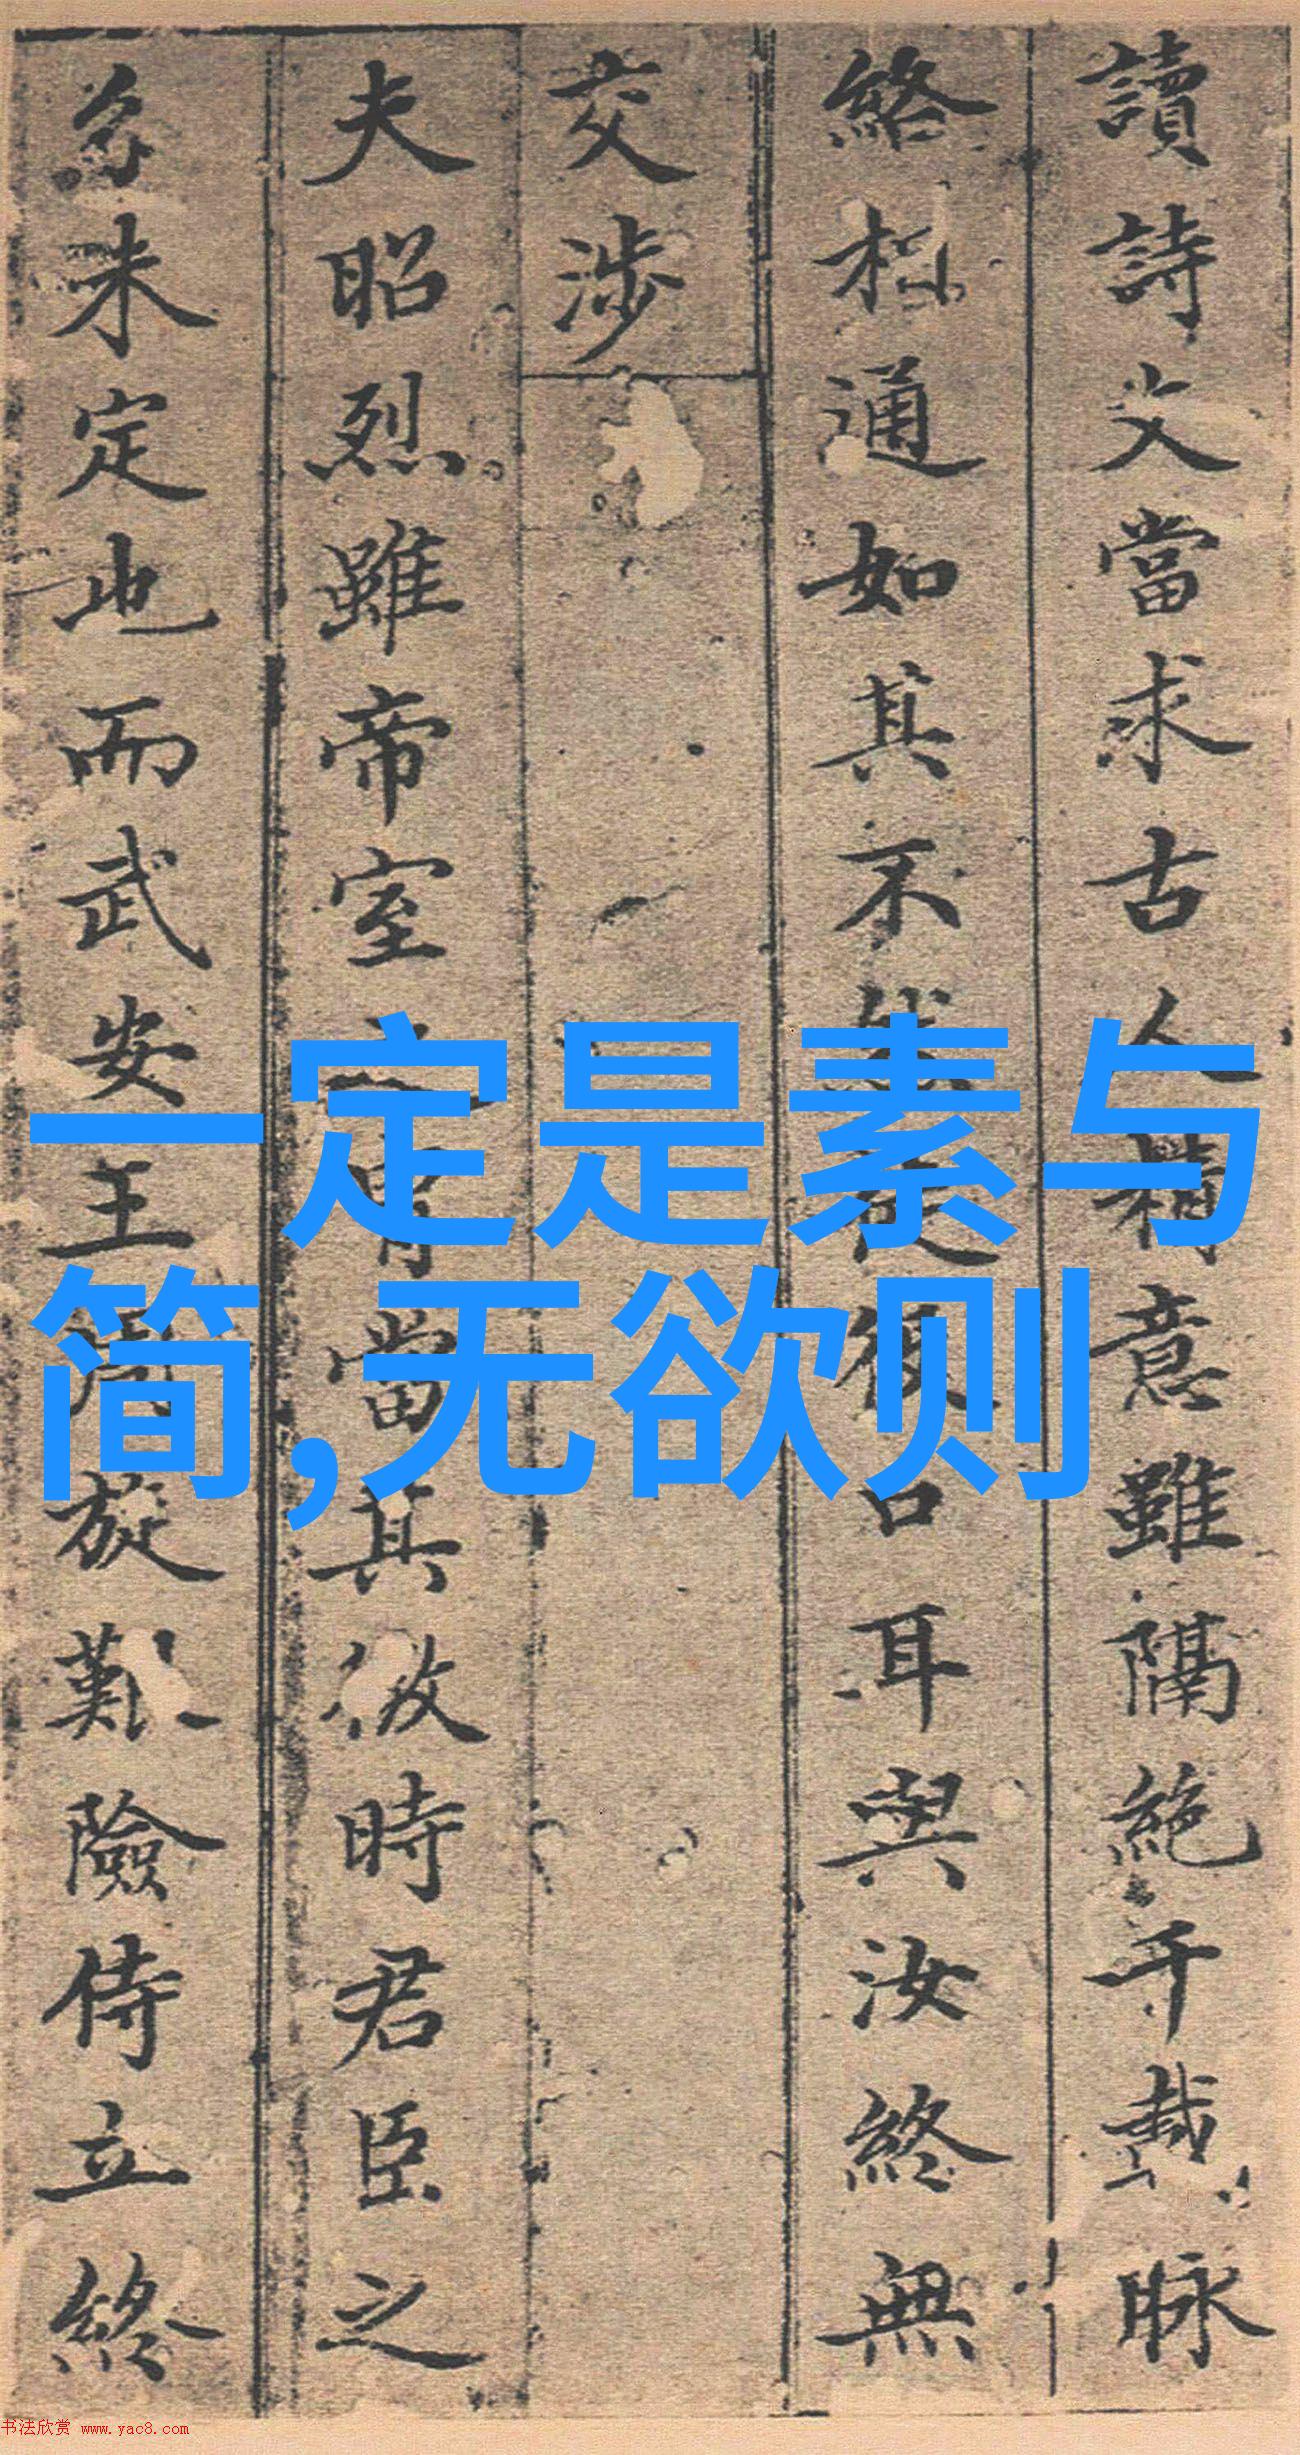 讀詩文當求古人精意雖隔絶千載脉
絡相通如其不然徒假口耳與汝終無
交涉
夫昭烈雖帝室之胄當其微時君臣之
未定也而武安王周旋艱險侍立終
一定是素与
简,无欲则
书法欣赏 www.yac8.com